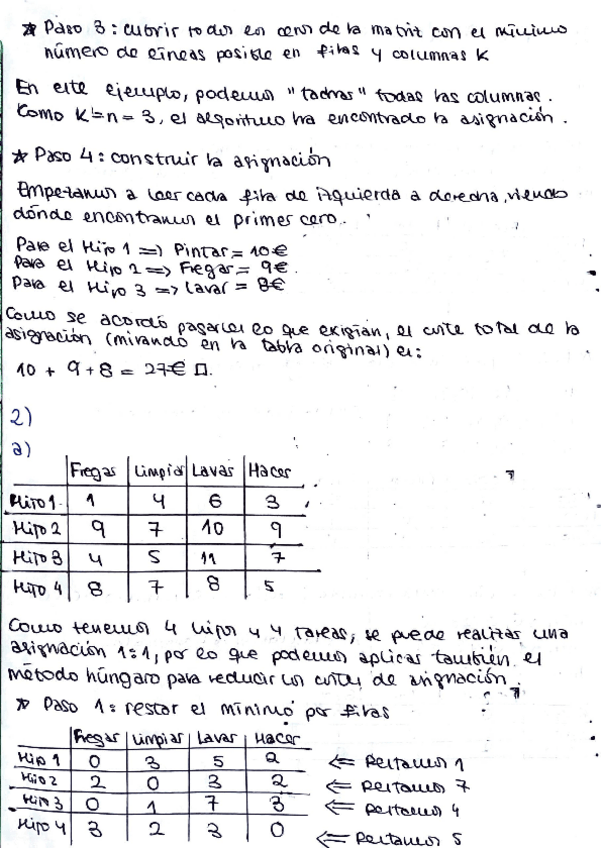 * Paso 3: cubrir todos los ceros de la matriz con el mínimo
número de líneas posible en filas y columnas K
En este ejemplo, podemos "tachar" todas las columnas.
Como K=n=3, el algoritmo ha encontrado la asignación.
* Paso 4: construir la asignación
Empezamos a leer cada fila de izquierda a derecha, viendo
dónde encontramos el primer cero.
Para el Hijo 1 => Pintar = 10€
Para el Hijo 2 => Fregar = 9€.
Para el Hijo 3 => Lavar = 8€
Como se acordó pagarles lo que exigían, el coste total de la
asignación (mirando en la tabla original) es:
10 + 9 + 8 = 27€ □.
2)
a)
Fregar Limpiar Lavar Hacer
Hijo 1 1 4 6 3
Hijo 2 9 7 10 9
Hijo 3 4 5 11 7
Hijo 4 8 7 8 5
Como tenemos 4 hijos y 4 tareas, se puede realizar una
asignación 1:1, por lo que podemos aplicar también el
método húngaro para reducir los costes de asignación.
* Paso 1: restar el mínimo por filas
Fregar Limpiar Lavar Hacer
Hijo 1 0 3 5 2 <= Restamos 1
Hijo 2 2 0 3 2 <= Restamos 7
Hijo 3 0 1 7 3 <= Restamos 4
Hijo 4 3 2 3 0 <= Restamos 5